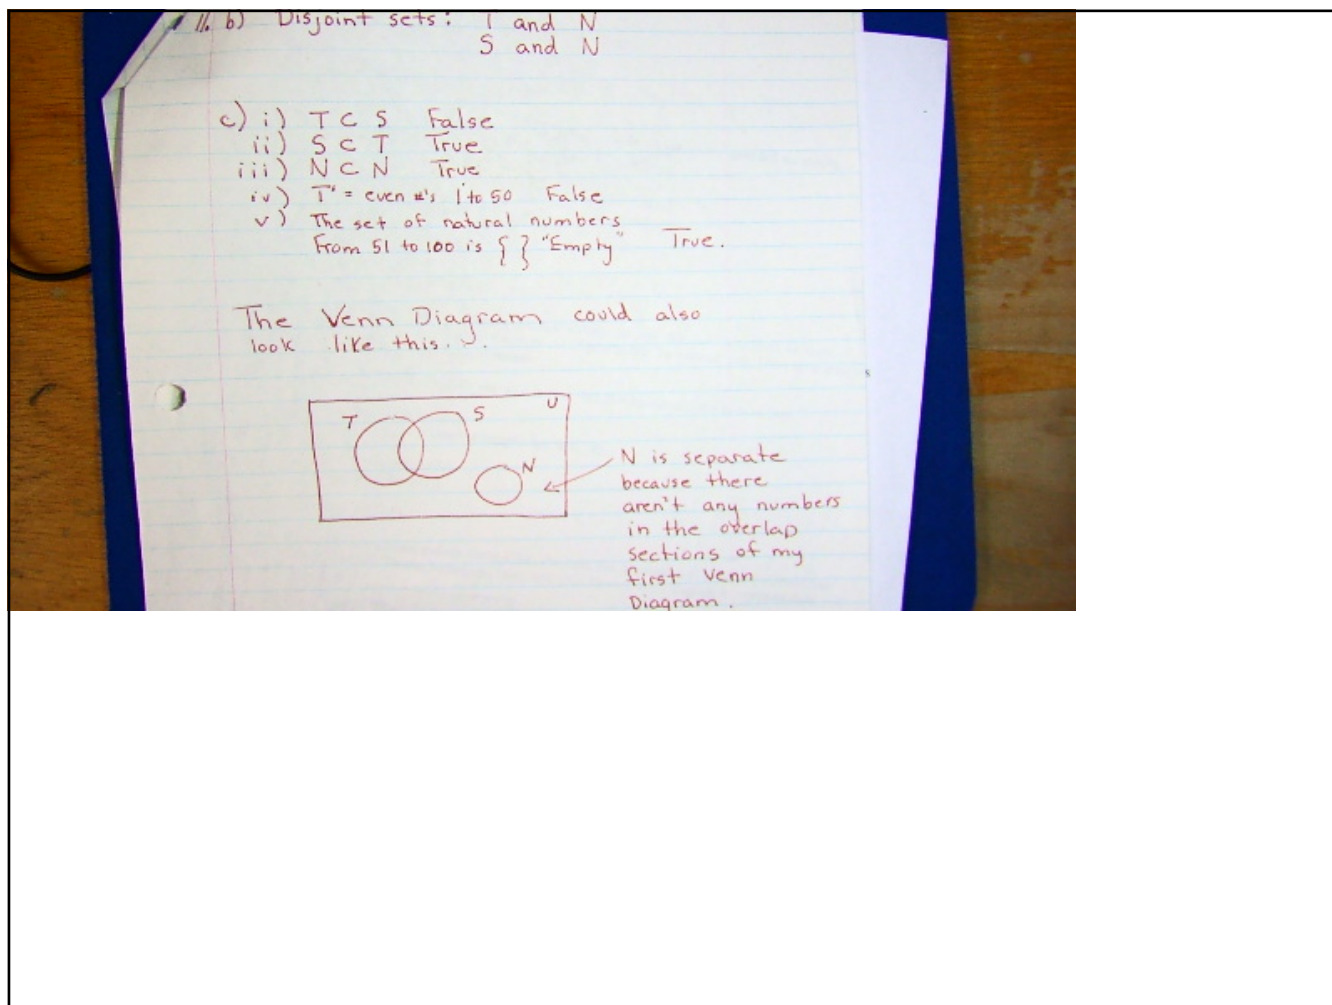 11. b) Disjoint sets: T and N
S and N
c) i) T ⊂ S False
ii) S ⊂ T True
iii) N ⊂ N True
iv) T' = even #'s 1 to 50 False
v) The set of natural numbers
from 51 to 100 is { } "Empty" True.
The Venn Diagram could also
look like this...
T S U
N
N is separate
because there
aren't any numbers
in the overlap
sections of my
first Venn
Diagram.